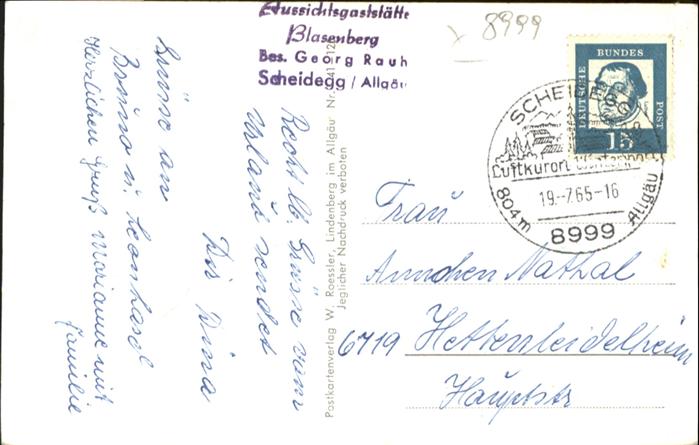 Aussichtsgaststätte
Blasenberg
Bes. Georg Rauh
Scheidegg / Allgäu
8999
DEUTSCHE
BUNDES
POST
15
SCHEIDEGG
Luftkurort
19.-7.65-16
804m
8999
Allgäu
Recht lb. Grüsse vom
Urlaub sendet
Dir Dina
Grüsse an
Bruno u. Leonhard
Herzlichen Gruß Marianne mit
Familie
Postkartenverlag W. Roessler, Lindenberg im Allgäu
Jeglicher Nachdruck verboten
Frau
Ännchen Nathal
6719 Hettenleidelheim
Hauptstr